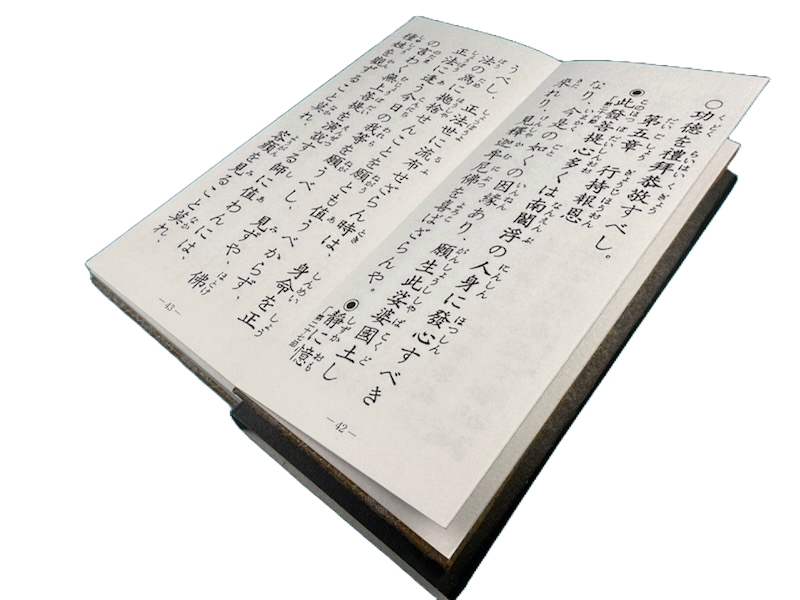 〇功徳を禮拜恭敬すべし。
第五章 行持報恩
◉此發菩提心多くは南閻浮の人身に發心すべき
なり、今是の如くの因縁あり、願生此娑婆國土し
來れり、見釋迦牟尼佛を喜ばざらんや。
◉靜に憶
第二十七節
—42—
うべし、正法世に流布せざらん時は、身命を正
法の為に抛捨せんことを願うとも値うべからず、
正法に逢う今日の我等を願うべし、見ずや、佛
の言わく無上菩提を演説する師に値わんには、
種姓を觀ずること莫れ、容顔を見ること莫れ、
—43—